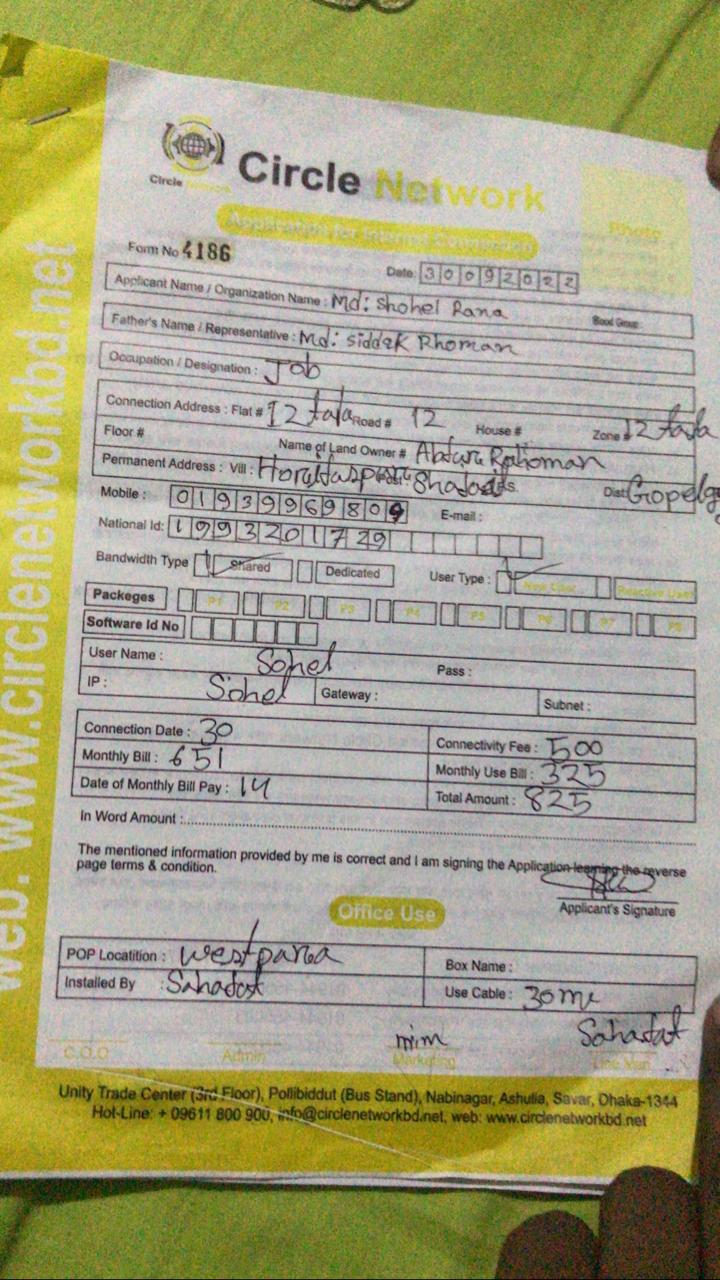 Circle Network
Circle Network
Application for Internet Connection
Photo
Form No 4186
Date: 30092022
Applicant Name / Organization Name : Md: Shohel Rana Blood Group:
Father's Name / Representative : Md: Siddek Rhoman
Occupation / Designation : Job
Connection Address : Flat # Road # 12 House # Zone #
Floor # Name of Land Owner # Rohoman
Permanent Address : Vill : Dist:
Mobile : 01939969809 E-mail :
National Id: 1993201729
Bandwidth Type Shared Dedicated User Type : New User Reactive User
Packeges P1 P2 P3 P4 P5 P6 P7 P8
Software Id No
User Name : Sohel Pass :
IP : Sohel Gateway : Subnet :
Connection Date : 30 Connectivity Fee : 500
Monthly Bill : 651 Monthly Use Bill : 325
Date of Monthly Bill Pay : 14 Total Amount : 825
In Word Amount :
The mentioned information provided by me is correct and I am signing the Application learning the reverse
page terms & condition.
Applicant's Signature
Office Use
POP Locatition : Westparea Box Name :
Installed By : Sahadat Use Cable : 30m
mim Sahadat
C.O.O Admin Marketing Line Man
Unity Trade Center (3rd Floor), Pollibiddut (Bus Stand), Nabinagar, Ashulia, Savar, Dhaka-1344
Hot-Line: + 09611 800 900, info@circlenetworkbd.net, web: www.circlenetworkbd.net
web: www.circlenetworkbd.net